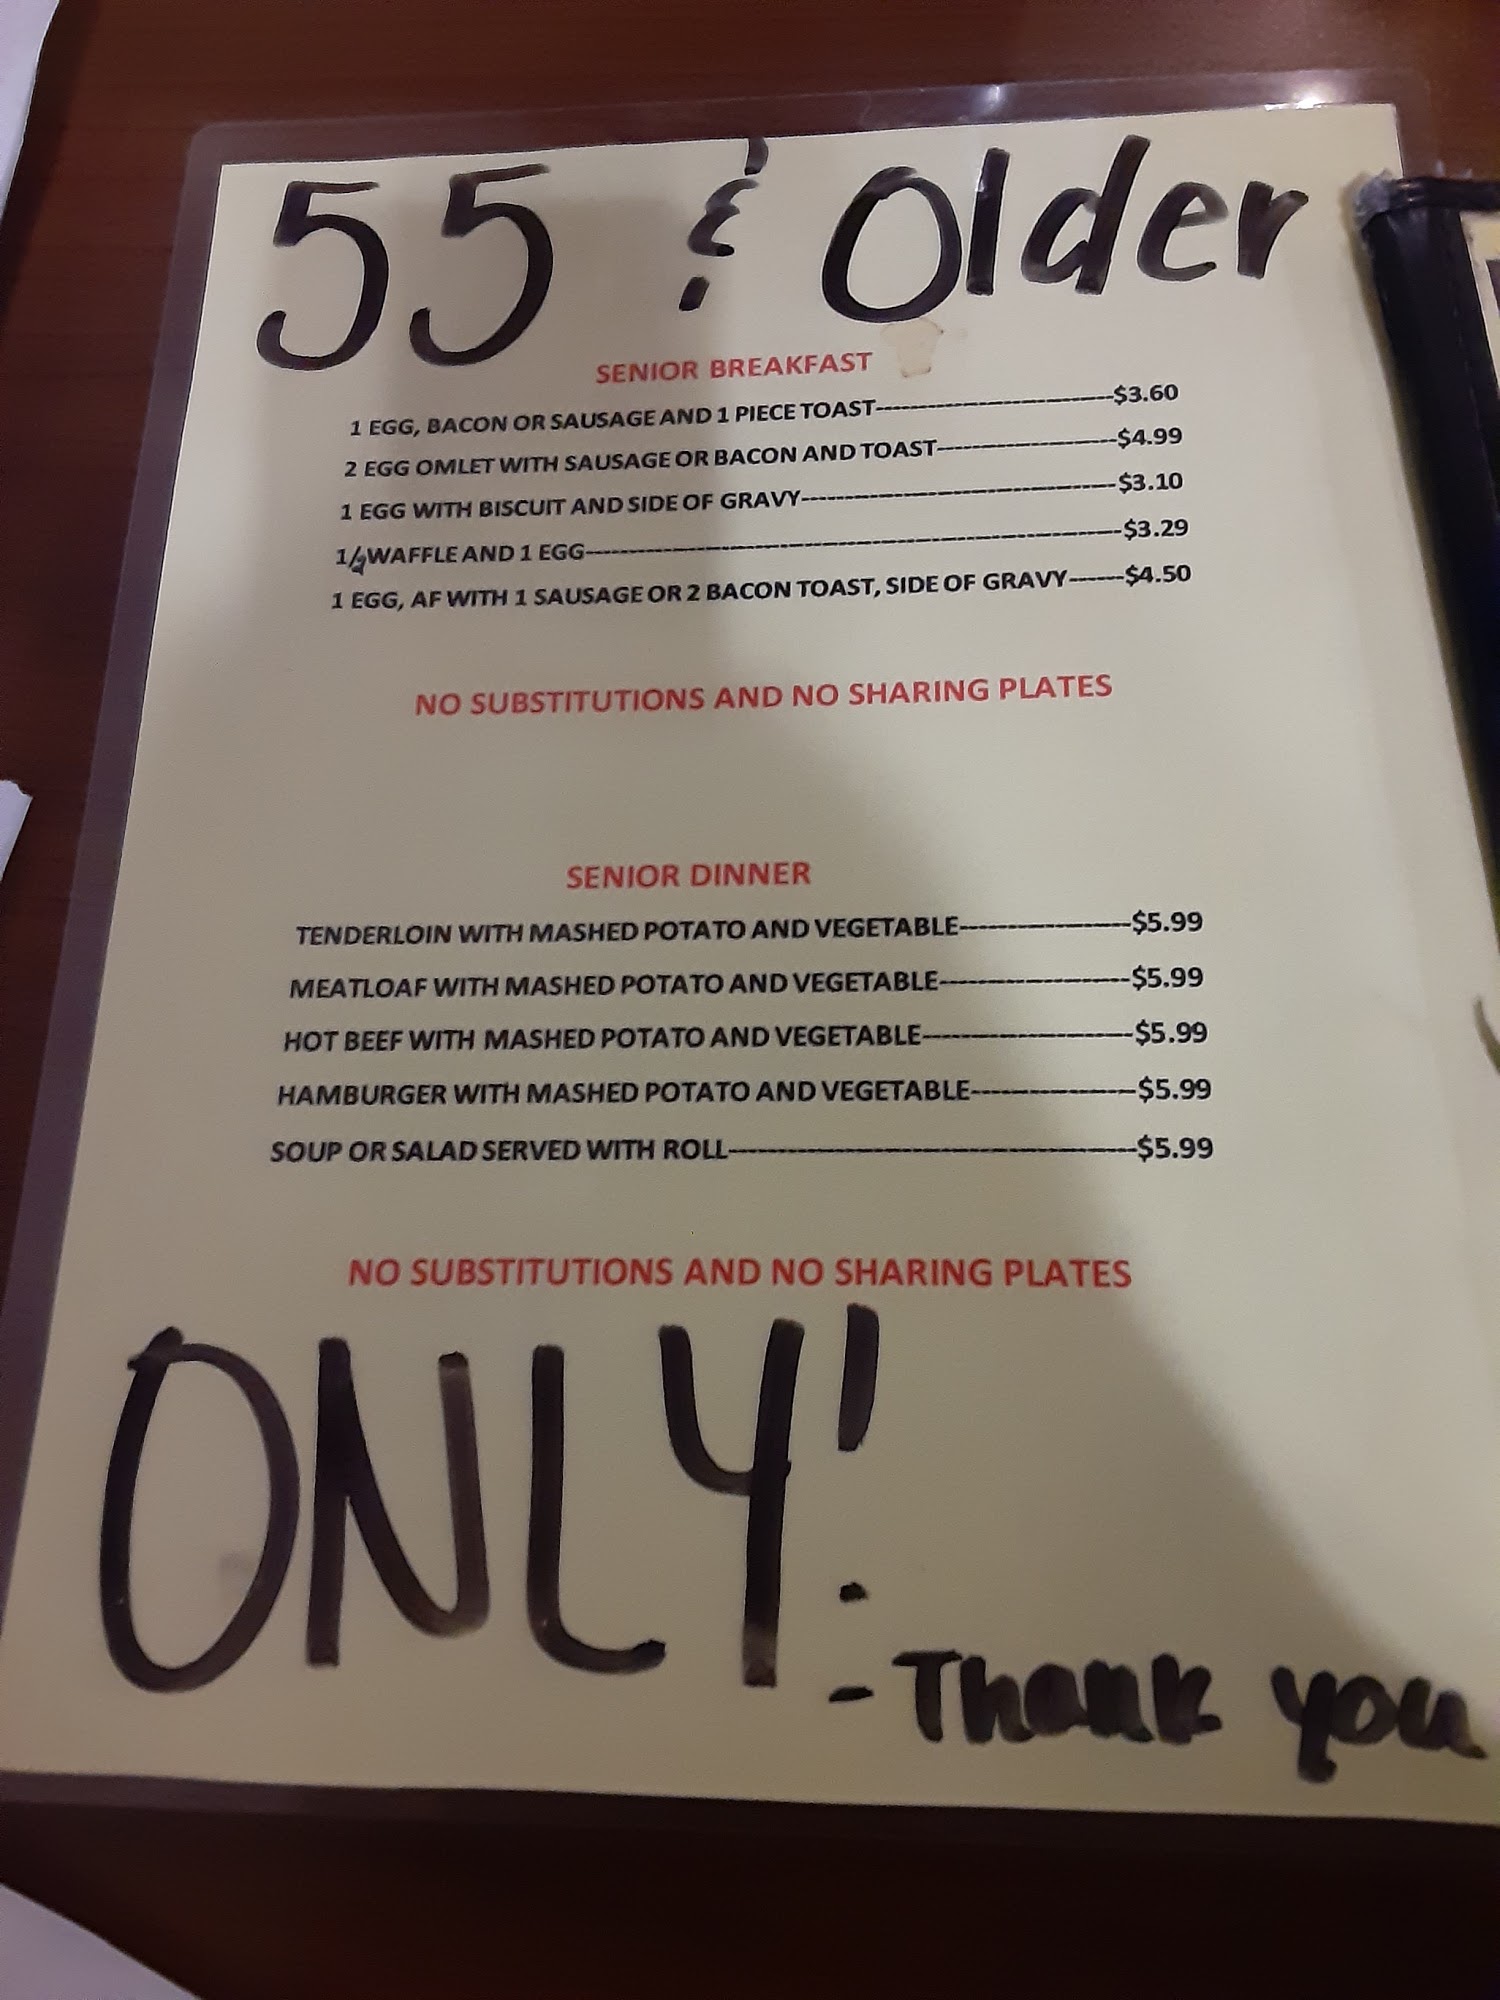 55 & Older
SENIOR BREAKFAST
1 EGG, BACON OR SAUSAGE AND 1 PIECE TOAST---------------------------$3.60
2 EGG OMLET WITH SAUSAGE OR BACON AND TOAST--------------------$4.99
1 EGG WITH BISCUIT AND SIDE OF GRAVY-----------------------------------$3.10
1/2 WAFFLE AND 1 EGG------------------------------------------------------------$3.29
1 EGG, AF WITH 1 SAUSAGE OR 2 BACON TOAST, SIDE OF GRAVY------$4.50
NO SUBSTITUTIONS AND NO SHARING PLATES
SENIOR DINNER
TENDERLOIN WITH MASHED POTATO AND VEGETABLE------------------$5.99
MEATLOAF WITH MASHED POTATO AND VEGETABLE--------------------$5.99
HOT BEEF WITH MASHED POTATO AND VEGETABLE----------------------$5.99
HAMBURGER WITH MASHED POTATO AND VEGETABLE-----------------$5.99
SOUP OR SALAD SERVED WITH ROLL------------------------------------------$5.99
NO SUBSTITUTIONS AND NO SHARING PLATES
ONLY!
- Thank you